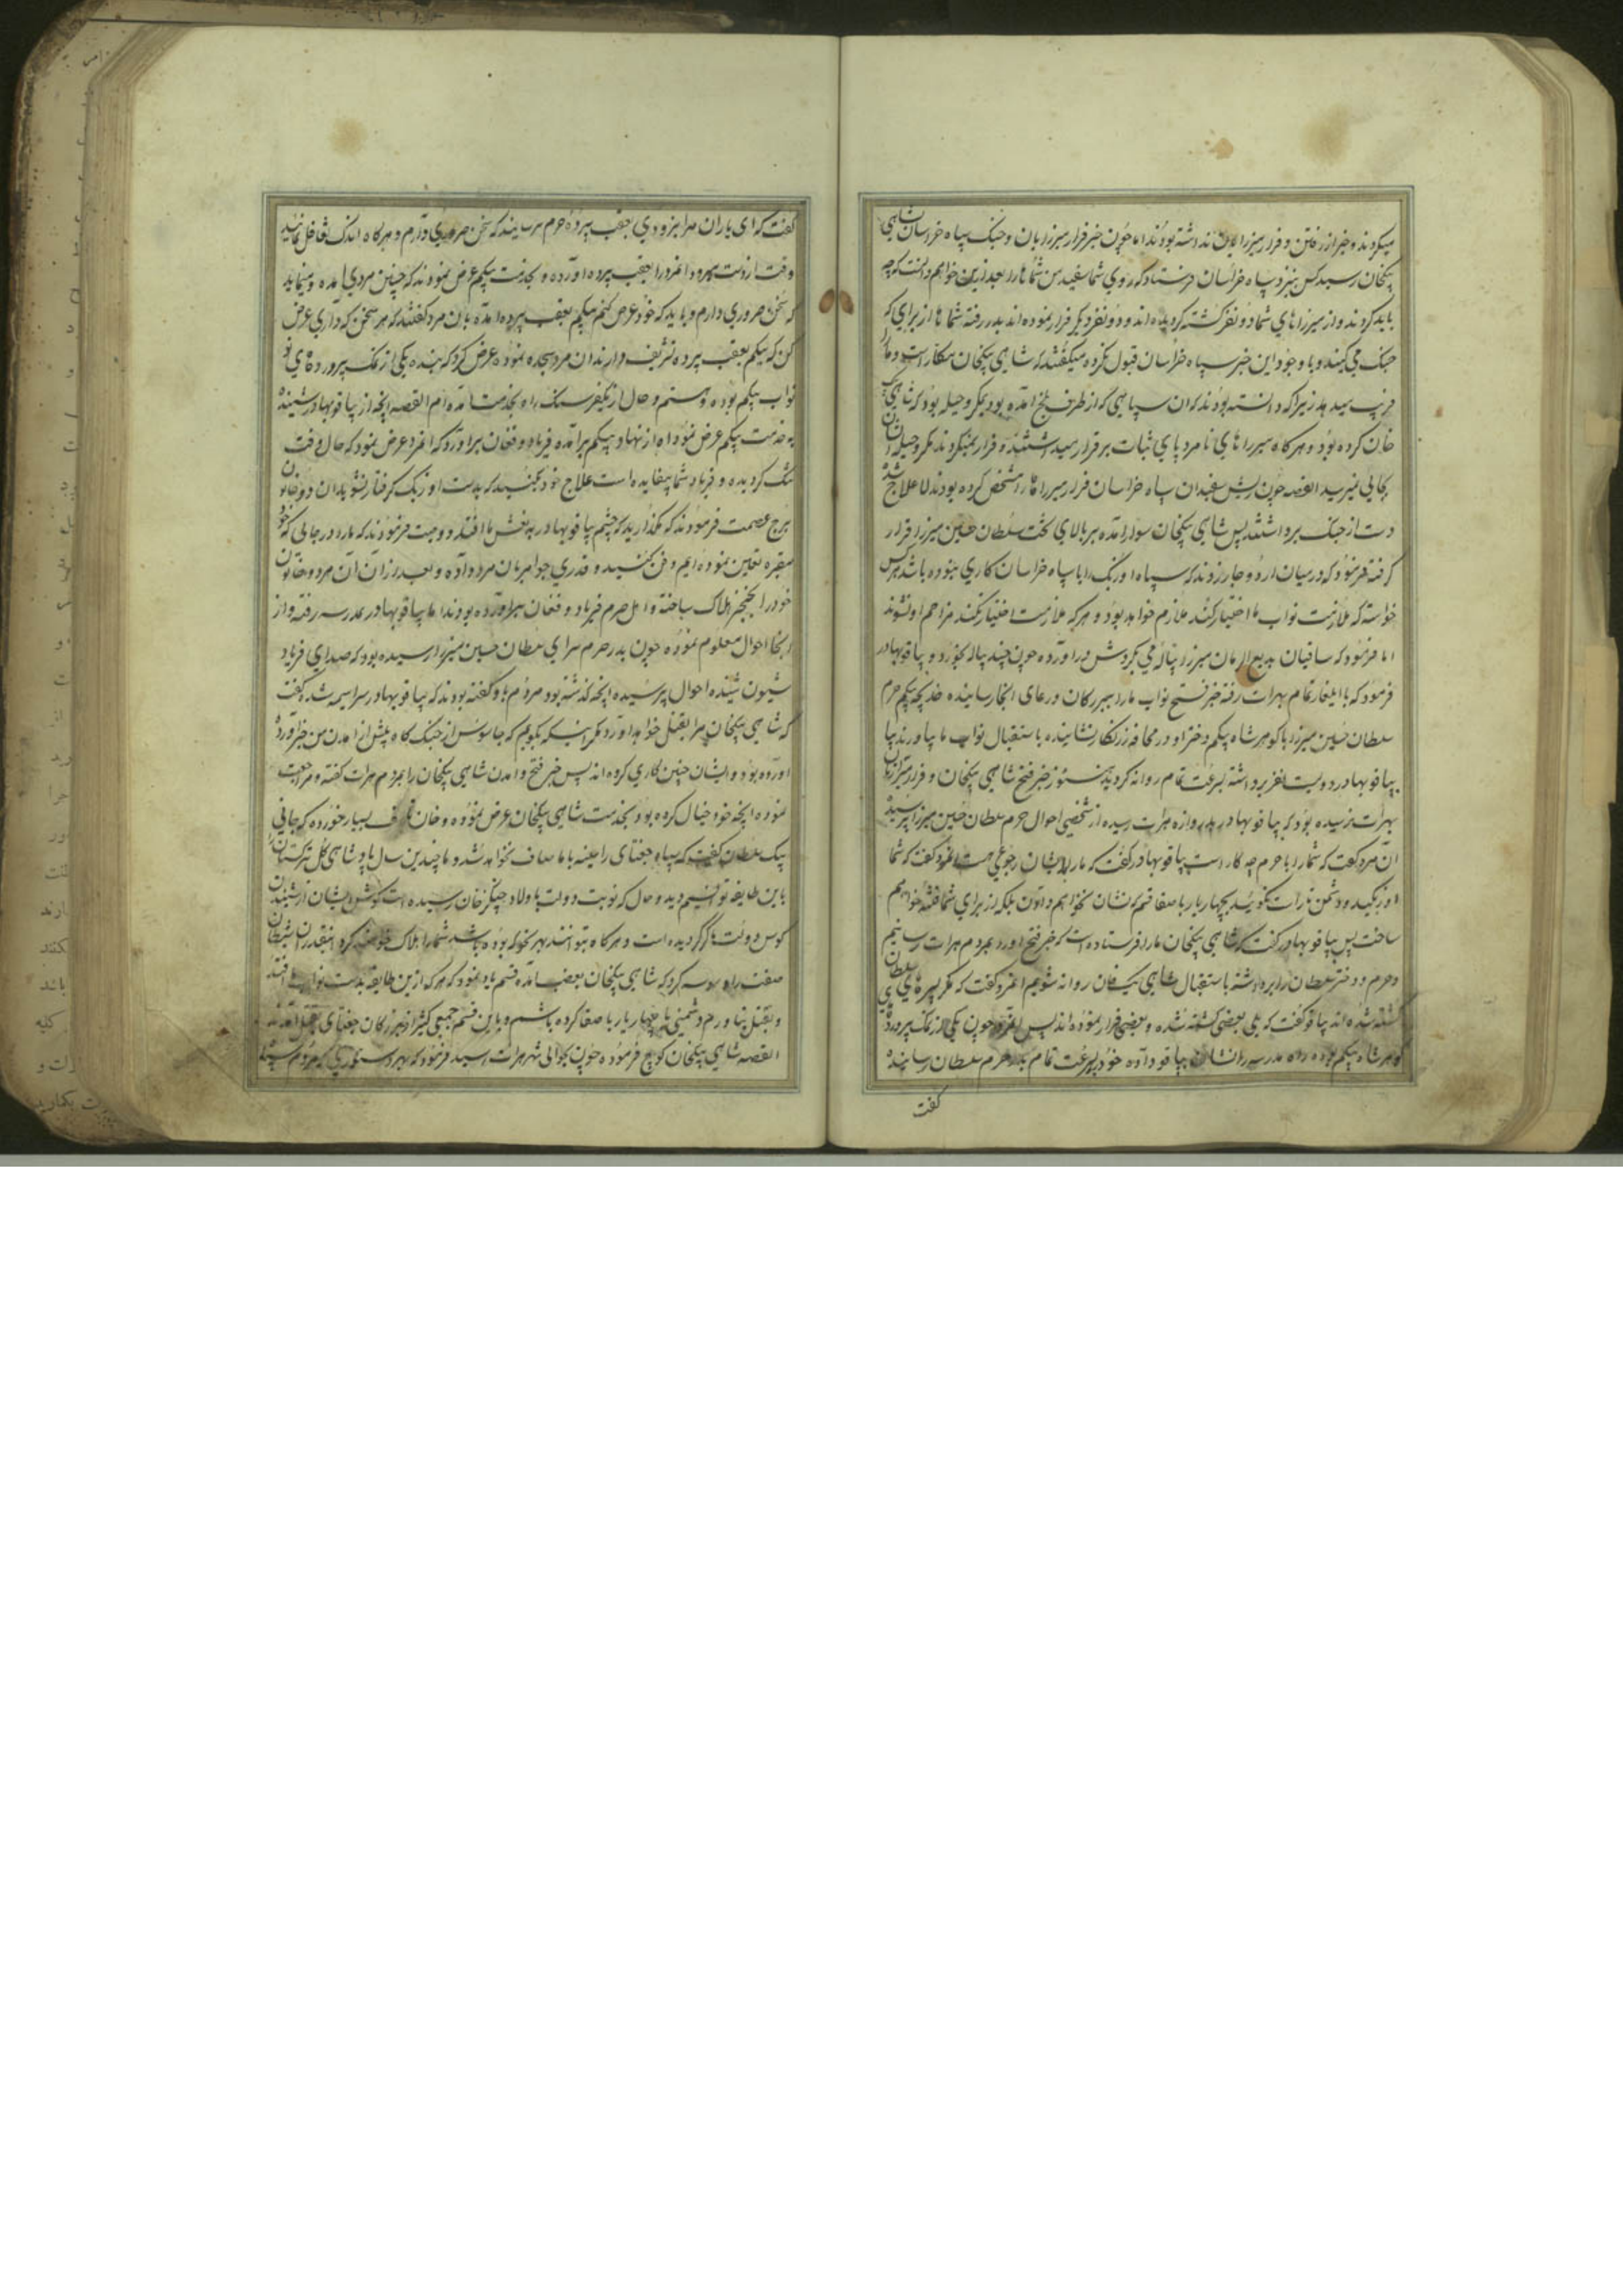 میکردند و خبر از رفتن و فرار میرزایان نداشته بودند اما چون خبر فرار میرزایان و جنک سپاه خراسان بشاهی
پیکخان رسید کس بنزد سپاه خراسان فرستاد که روی شما سفید من شما را بعد ازین خواهم دانست که چه
باید کرد و از میرزاهای شما دو نفر کشته کردیده اند و دو نفر دیکر فرار نموده اند بدر رفته شما ها از برای که
جنک می کنید و با وجود این خبر سپاه خراسان قبول نکرده میکفتند که شاهی پیکخان مکار است و ما را
فریب میدهد زیرا که دانسته بودند که ان سپاهی که از طرف بلخ امده بود مکر و حیله بود که شاهی پیک
خان کرده بود و هرکاه میرزاهای نامرد پای ثبات بر قرار میداشتند و فرار نمیکردند مکر و حیله آن
بجایی نمیرسید القصه چون ریش سفیدان سپاه خراسان فرار میرزاها را مشخص کرده بودند لا علاج شد
دست از جنک برداشتند پس شاهی پیکخان سوار امده بر بالای تخت سلطان حسین میرزا قرار
کرفته فرمود که در میان اردو جار زدند که سپاه اوزبک را با سپاه خراسان کاری نبوده باشد هر کس
خواسته که ملازمت نواب ما اختیار کند ملازم خواهد بود و هر که ملازمت اختیار نکند مزاحم او نشوند
اما فرمود که ساقیان بدیع الزمان میرزا پیاله می بکردش دراورده چون چند پیاله بخورد و بیاقو بهادر
فرمود که با ایلغار تمام بهرات رفته خبر فتح نواب ما را ببزرکان و رعای انجا رسانیده خدیجه بیکم حرم
سلطان حسین میرزا با کوهر شاه بیکم دختر او در محافه زرنکار نشانیده باستقبال نواب ما بیاورند پیا
بیاقو بهادر دویست نفر برداشته بسرعت تمام روانه کردید هنوز خبر فتح شاهی پیکخان و فرار میرزایان
بهرات نرسیده بود که بیاقو بهادر بدروازه هرات رسیده از شخصی احوال حرم سلطان حسین میرزا پرسید
آن مرد کفت که شما را با حرم چه کار است بیاقو بهادر کفت که ما را بایشان رجوعی هست انمرد کفت که شما
اوزبکید و دشمن تا راست نکوئید بچهار یار با صفا قسم که نشان نخواهم دادن بلکه از برای شما فتنه خواهم
ساخت پس بیاقو بهادر کفت که شاهی پیکخان ما را فرستاده است که خبر فتح اورد بمردم هرات رسانیم
و حرم و دختر سلطان را برداشته باستقبال شاهی پیک خان روانه شویم انمرد کفت که مکر پسرهای سلطان
کشته شده اند بیاقو کفت که بلی بعضی کشته شده و بعضی فرار نموده اند پس انمرد چون یکی از نمک پرورده
کوهر شاه بیکم بوده راه مدرسه را نشان بیاقو داده خود بسرعت تمام بدر حرم سلطان رسانیده
کفت
کفت که ای یاران مرا بزودی بعقب پرده حرم برسانید که سخن ضروری دارم و هرکاه اندک تغافل نمائید
وقت از دست میرود انمرد را بعقب پرده اورده و بخدمت بیکم عرض نمودند که چنین مردی امده و مینماید
که سخن ضروری دارم و باید که خود عرض کنم بیکم بعقب پرده امده بان مرد کفتند که هر سخن که داری عرض
کن که بیکم بعقب پرده تشریف دارند ان مرد سجده نموده عرض کرد که بنده یکی از نمک پرورد های تو
نواب بیکم بوده و هستم و حال از یکفرسنک راه بخدمت امده ام القصه انچه از بیاقو بهادر شنیده
بخدمت بیکم عرض نمود اه از نهاد بیکم برآمده فریاد و فغان برآورد که انمرد عرض نمود که حال وقت
تنک کردیده و فریاد شما بیفایده است علاج خود بکنید که بدست اوزبک کرفتار نشوید ان دو خاتون
برج عصمت فرمودند که مکذارید که چشم بیاقو بهادر به نعش ما افتد و وصیت فرمودند که ما را در جایی که خود
مقبره تعیین نموده ایم دفن کنید و قدری جواهر بان مرد داده و بعد از ان آن مرد و خاتون
خود را بخنجر هلاک ساخته و اهل حرم فریاد و فغان براورده بودند اما بیاقو بهادر بمدرسه رفته و از
انجا احوال معلوم نموده چون بدر حرم سرای سلطان حسین میرزا رسیده بود که صدای فریاد
شیون شنیده احوال پرسیده انچه کذشته بود مردم باو کفته بودند که بیاقو بهادر سراسیمه شد و کفت
که شاهی پیکخان مرا بقتل خواهد اورد مکر اینکه بکویم که جاسوس از جنک کاه پیش از امدن من خبر آورده
اورده بود و ایشان چنین کاری کرده اند پس خبر فتح و امدن شاهی پیکخان را بمردم هرات کفته و مراجعت
نموده انچه خود خیال کرده بود بخدمت شاهی پیکخان عرض نموده و خان تاسف بسیار خورده که جانی
پیک سلطان کفت که سپاه جغتای را سینه با ما صاف نخواهد شد و ما چندین سال پادشاهی کل ترکستان را
باین طایفه توانیم دید و حال که نوبت دولت باولاد چنکیز خان رسیده است کوش ایشان از شنیدن
کوس دولت ما کر کردیده است و هرکاه بتوانند بهر نحو که بوده باشد شما را هلاک خواهند کرد انقدر ان شیطان
صفت راه وسوسه کرد که شاهی پیکخان بغضب امده قسم یاد نمود که هر که ازین طایفه بدست نواب ما افتد
و بقتل نیاورم دشمنی با چهار یار با صفا کرده باشم و باین قسم جمعی کثیر از بزرکان جغتای بقتل آورد
القصه شاهی پیکخان کوچ فرموده چون بحوالی شهر هرات رسید فرمود که بهر دستوری که مردم